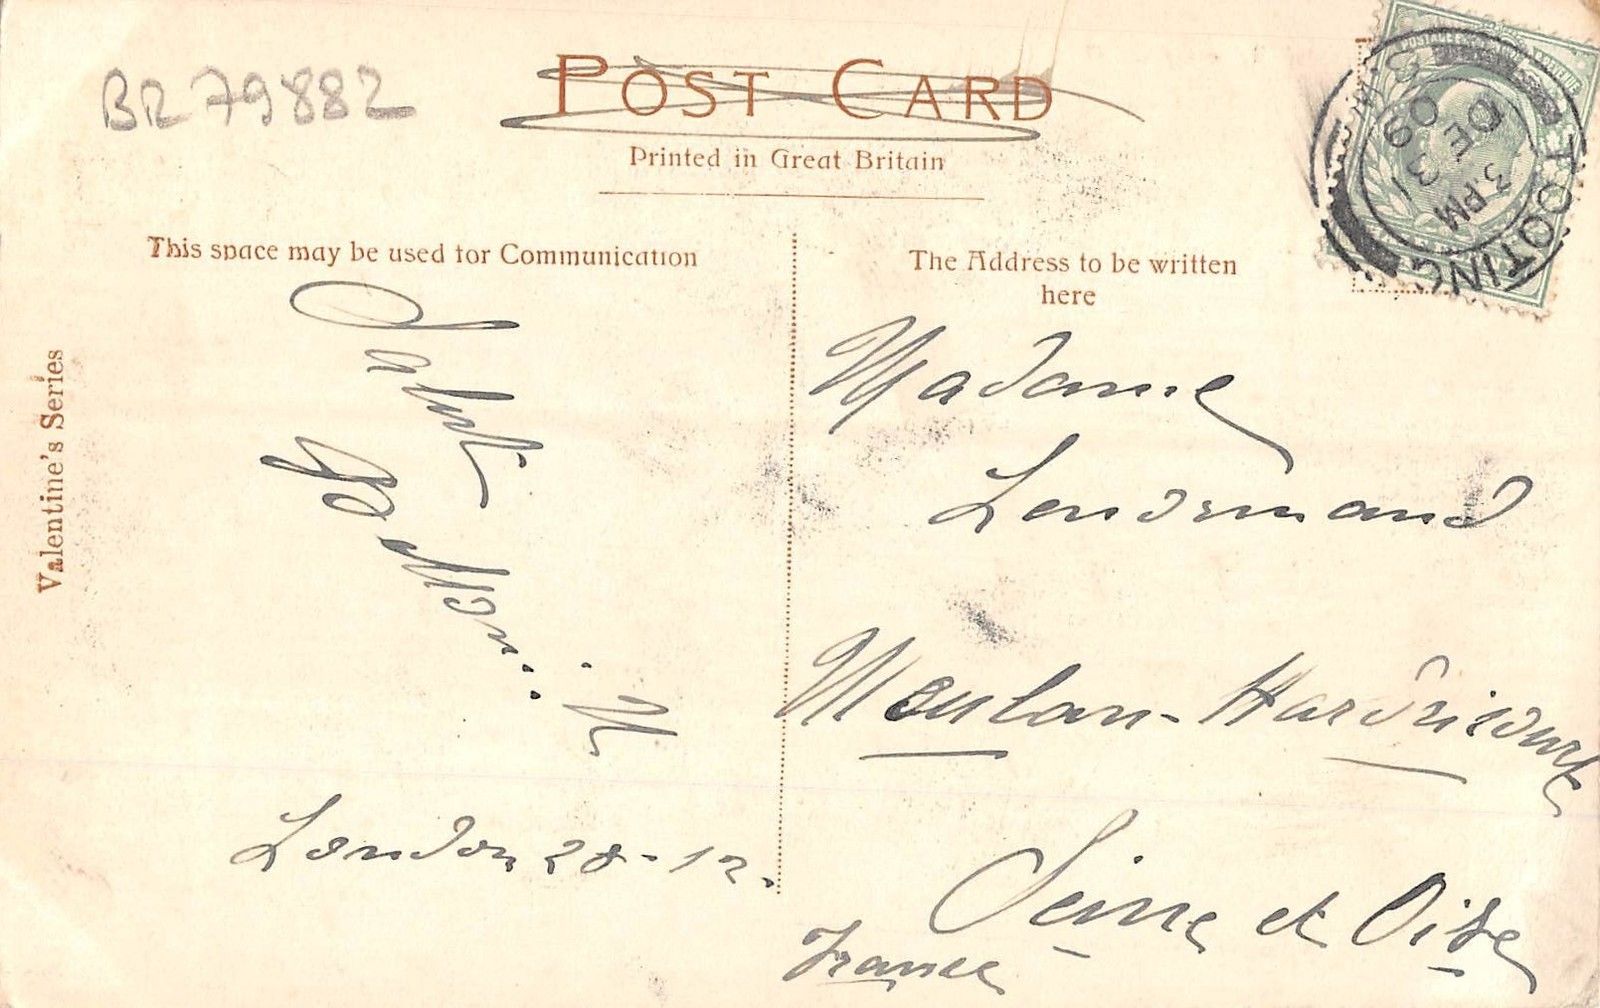 BR 79882
POST CARD
Printed in Great Britain
This space may be used for Communication
The Address to be written
here
Valentine's Series
TOOTING
3 PM
DE 31
09
Madame
Lendormand
Meulan-Hardricourt
Seine et Oise
France
London 28-12.